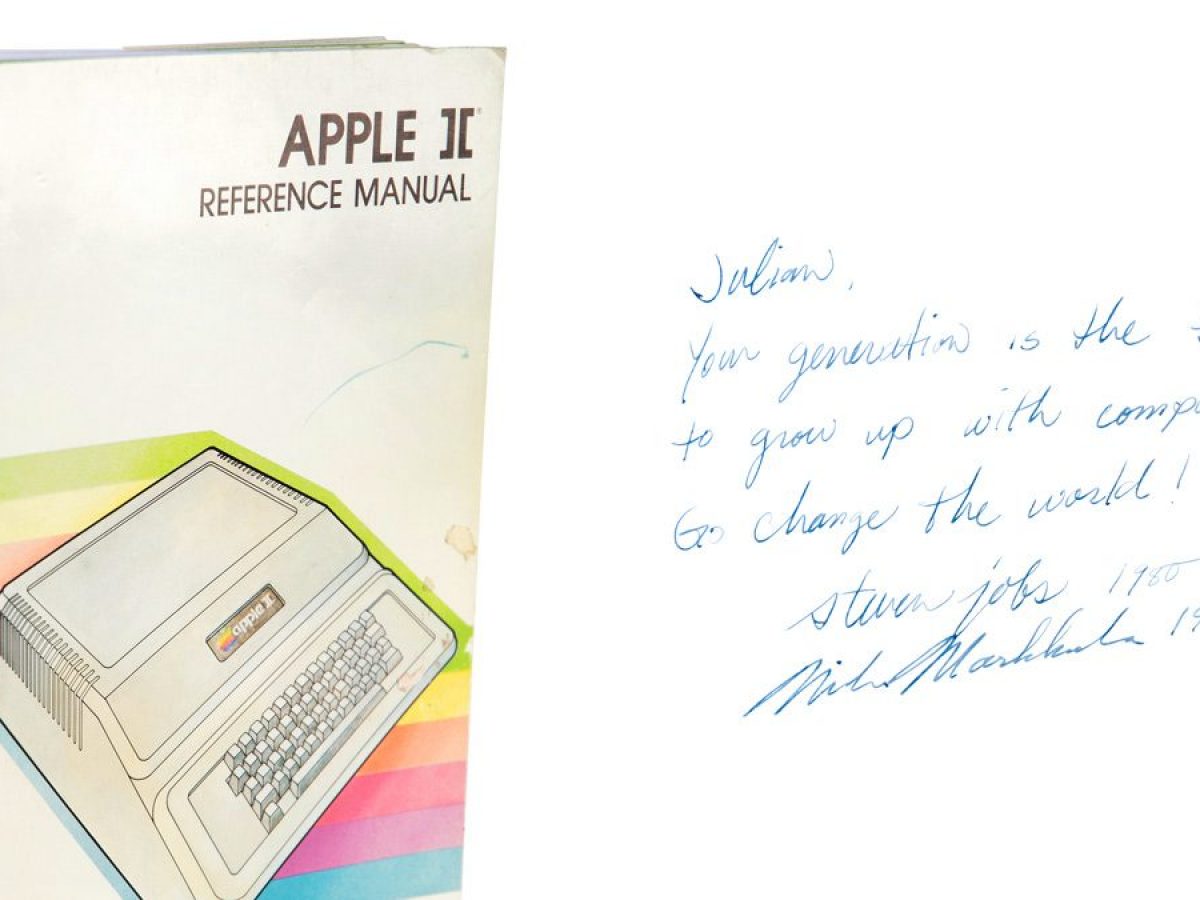 APPLE ][®
REFERENCE MANUAL
apple ][
Julian,
Your generation is the
to grow up with comp
Go change the world!
steven jobs 1980
Mike Markkula 19